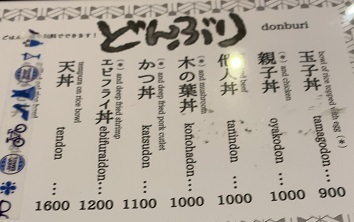 どんぶり donburi
bowl of rice topped with egg (*)
玉子丼 tamagodon … 900
(*) and chicken
親子丼 oyakodon … 1000
他人丼 tanindon … 1000
(*) and mushroom
木の葉丼 konohadon … 1000
(*) and deep fried pork cutlet
かつ丼 katsudon … 1100
(*) and deep fried shrimp
エビフライ丼 ebifuraidon … 1200
tempura on rice bowl
天丼 tendon … 1600